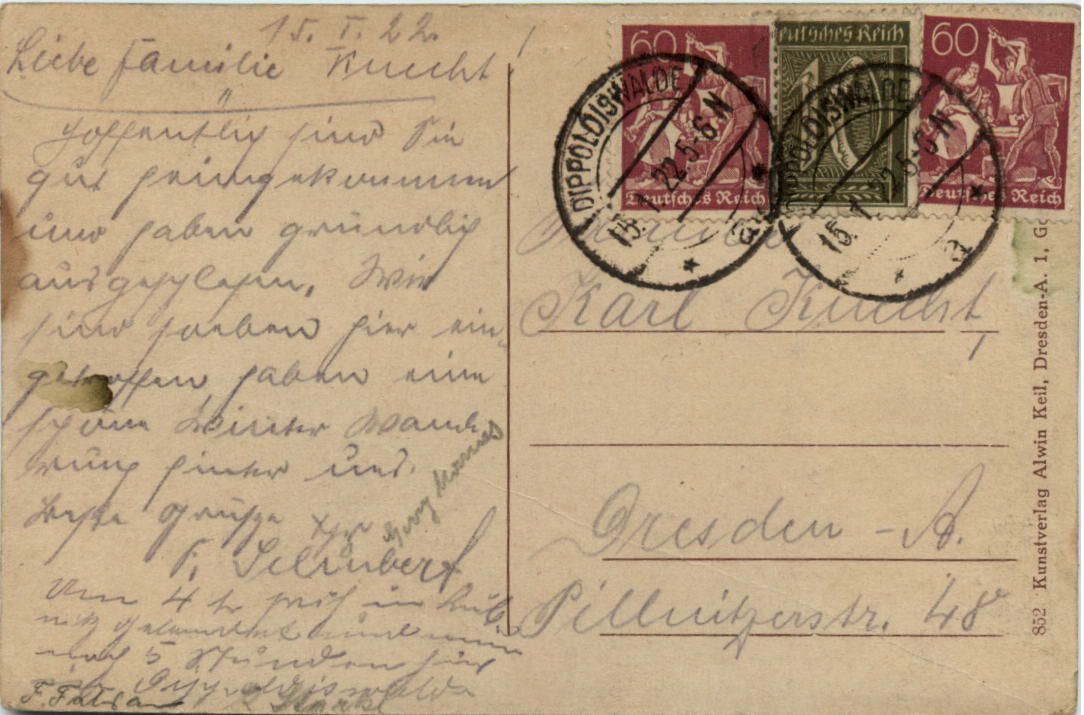 15. I. 22.
Liebe Familie Knecht
hoffentlich sind Sie
gut heimgekommen
und haben gründlich
ausgeschlafen. Wir
sind soeben hier ein-
getroffen haben eine
schöne Winter Wande-
rung hinter uns.
Beste Grüsse
Schubert
Um 4 früh in
gelandet und nun
nach 5 Stunden hier
Dippoldiswalde
60
Deutsches Reich
Deutsches Reich
10
60
Deutsches Reich
DIPPOLDISWALDE
15. 1. 22. 5-6 N
DIPPOLDISWALDE
15. 1. 22. 5-6 N
Familie
Karl Knecht,
Dresden - A.
Pillnitzerstr. 48
852 Kunstverlag Alwin Keil, Dresden-A. 1,